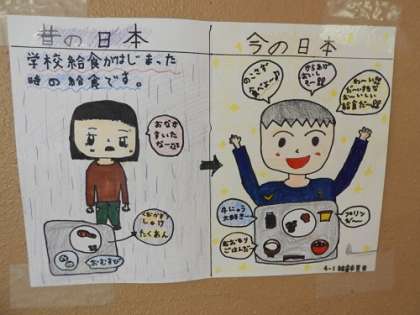 昔の日本
学校給食がはじまった
時の給食です。
おなか
すいた
なー
(おかず)
しゃけ
たくあん
おむすび
今の日本
のこさず
食べよー♪
からあげ
おいし
そー
わーい
だーいすきな
おいしい
給食だー
牛にゅう
大好き
プリン
だー
おおもり
ごはんだー